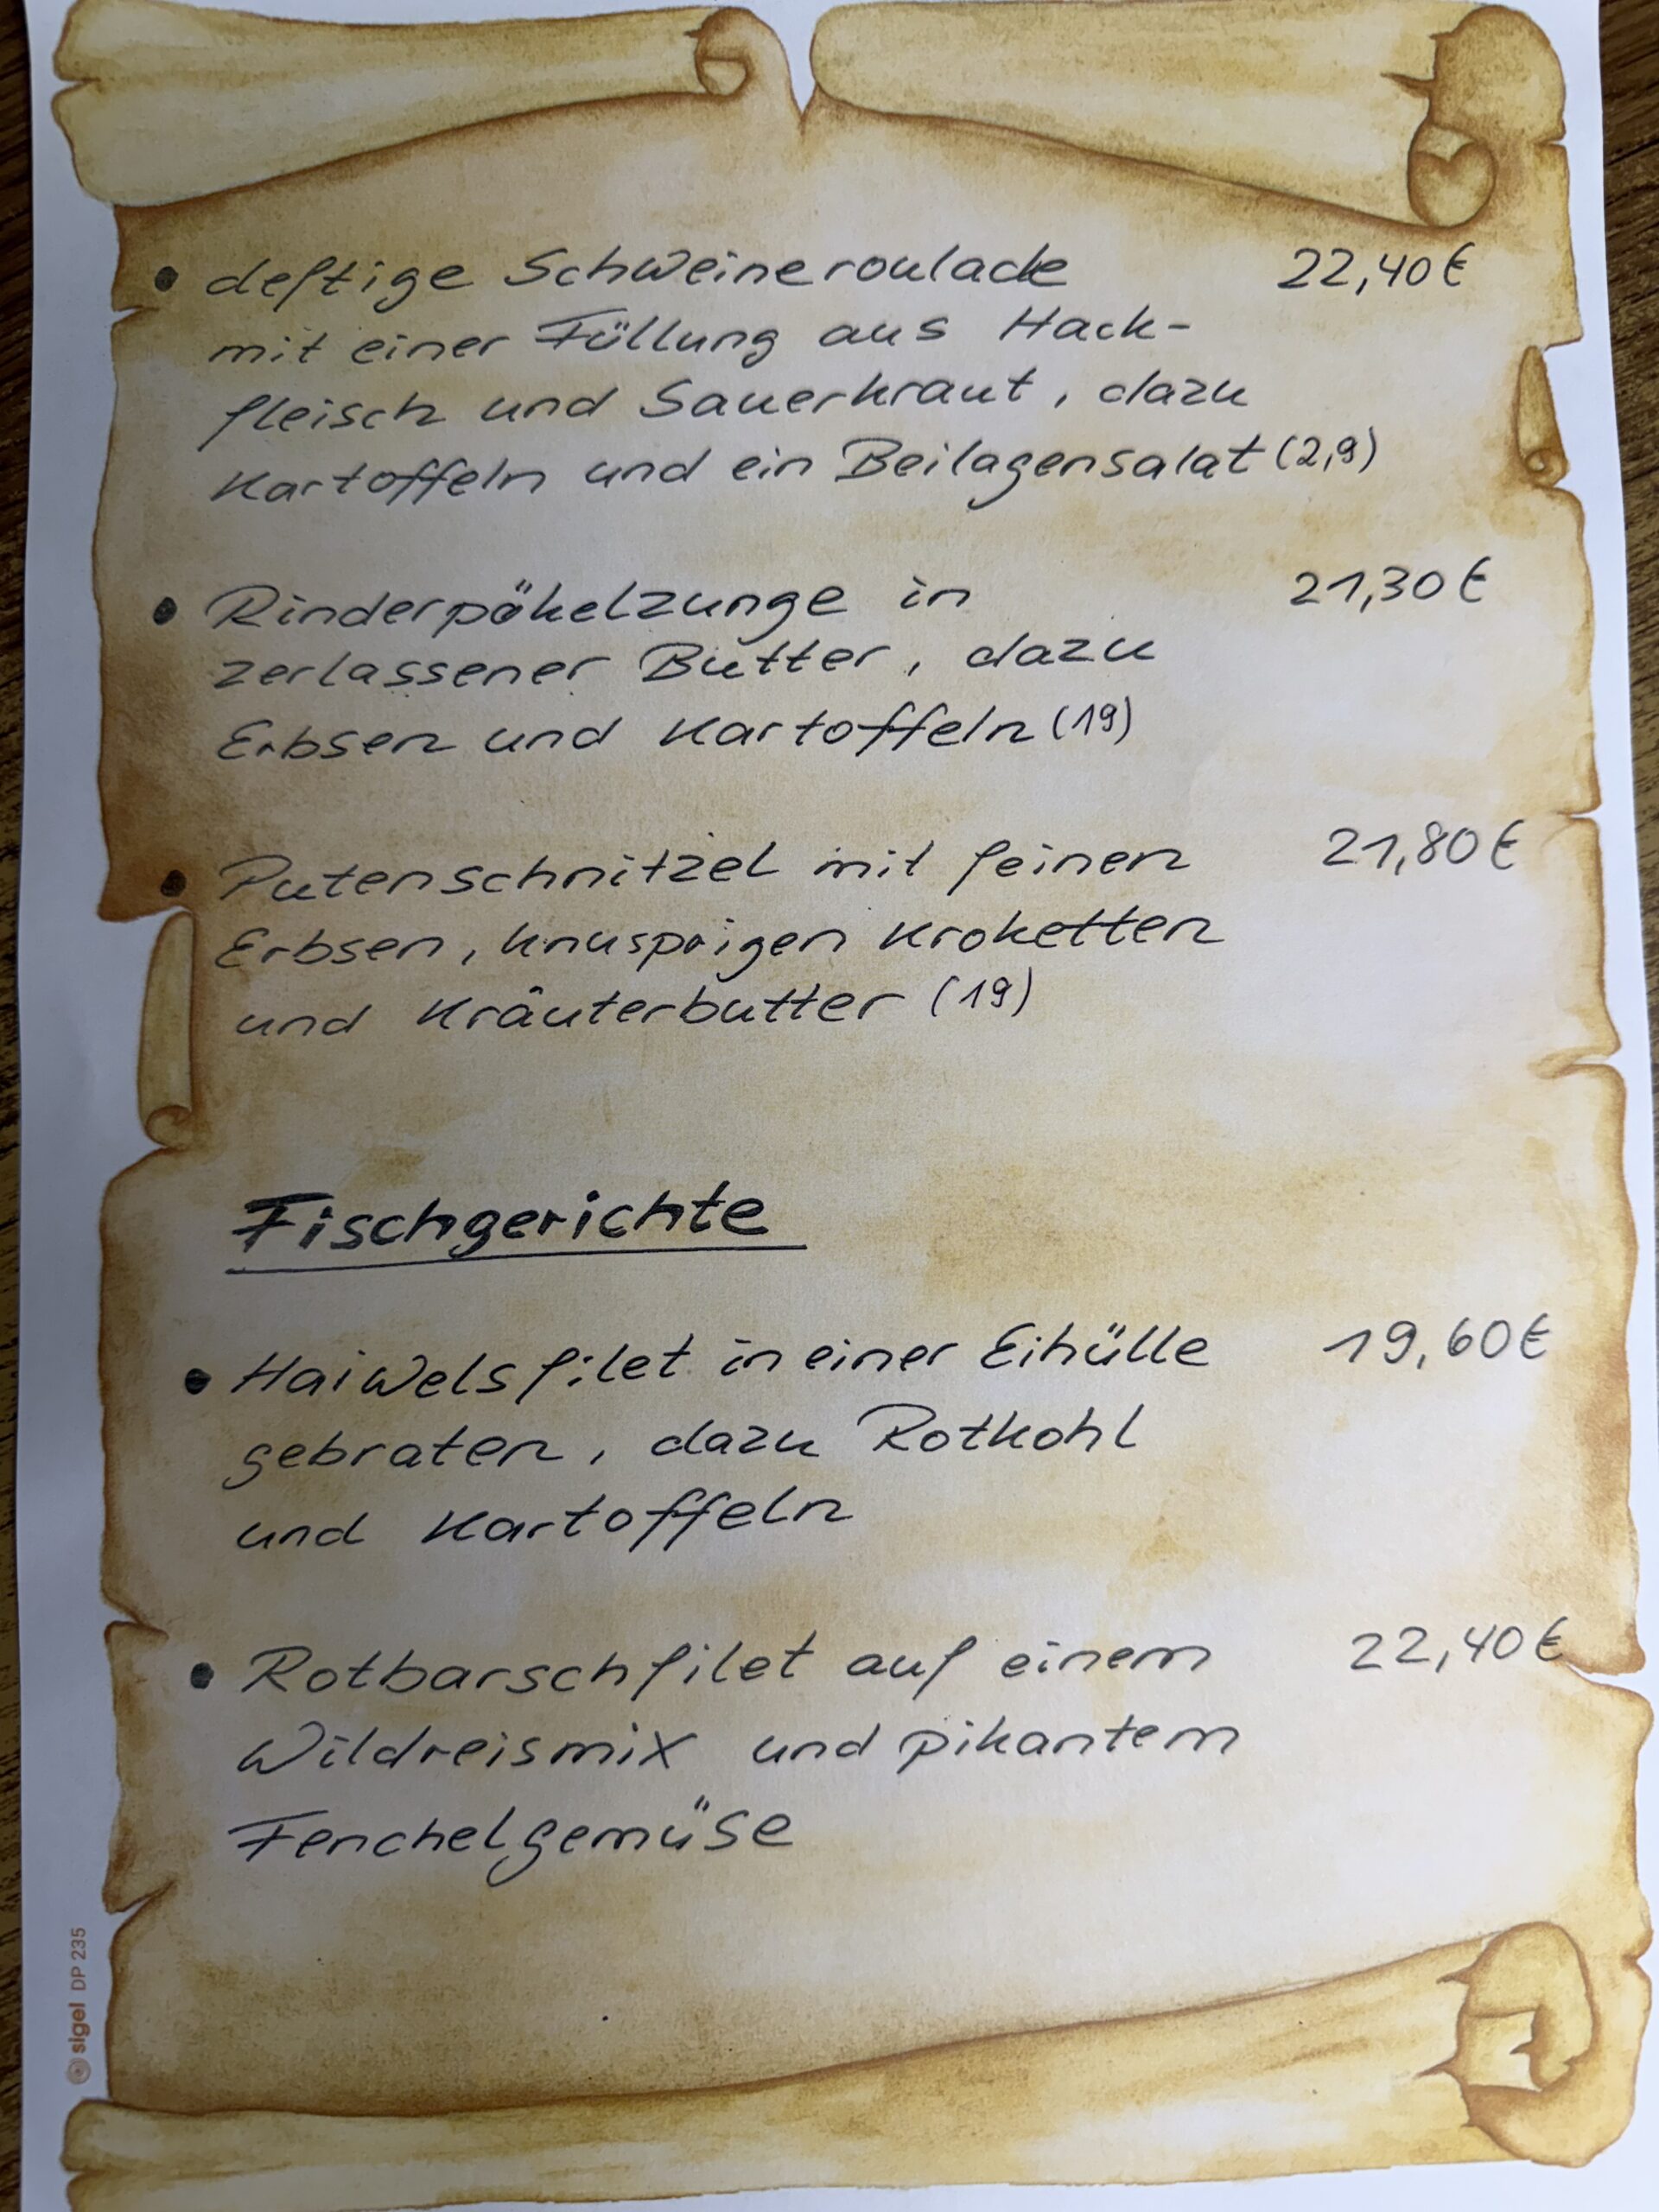 • deftige Schweineroulade 22,40€
mit einer Füllung aus Hack-
fleisch und Sauerkraut, dazu
Kartoffeln und ein Beilagensalat (2,9)
• Rinderpökelzunge in 21,30€
zerlassener Butter, dazu
Erbsen und Kartoffeln (19)
• Putenschnitzel mit feinen 21,80€
Erbsen, knusprigen Kroketten
und Kräuterbutter (19)
Fischgerichte
• Haiwelsfilet in einer Eihülle 19,60€
gebraten, dazu Rotkohl
und Kartoffeln
• Rotbarschfilet auf einem 22,40€
Wildreismix und pikantem
Fenchelgemüse
sigel DP 235